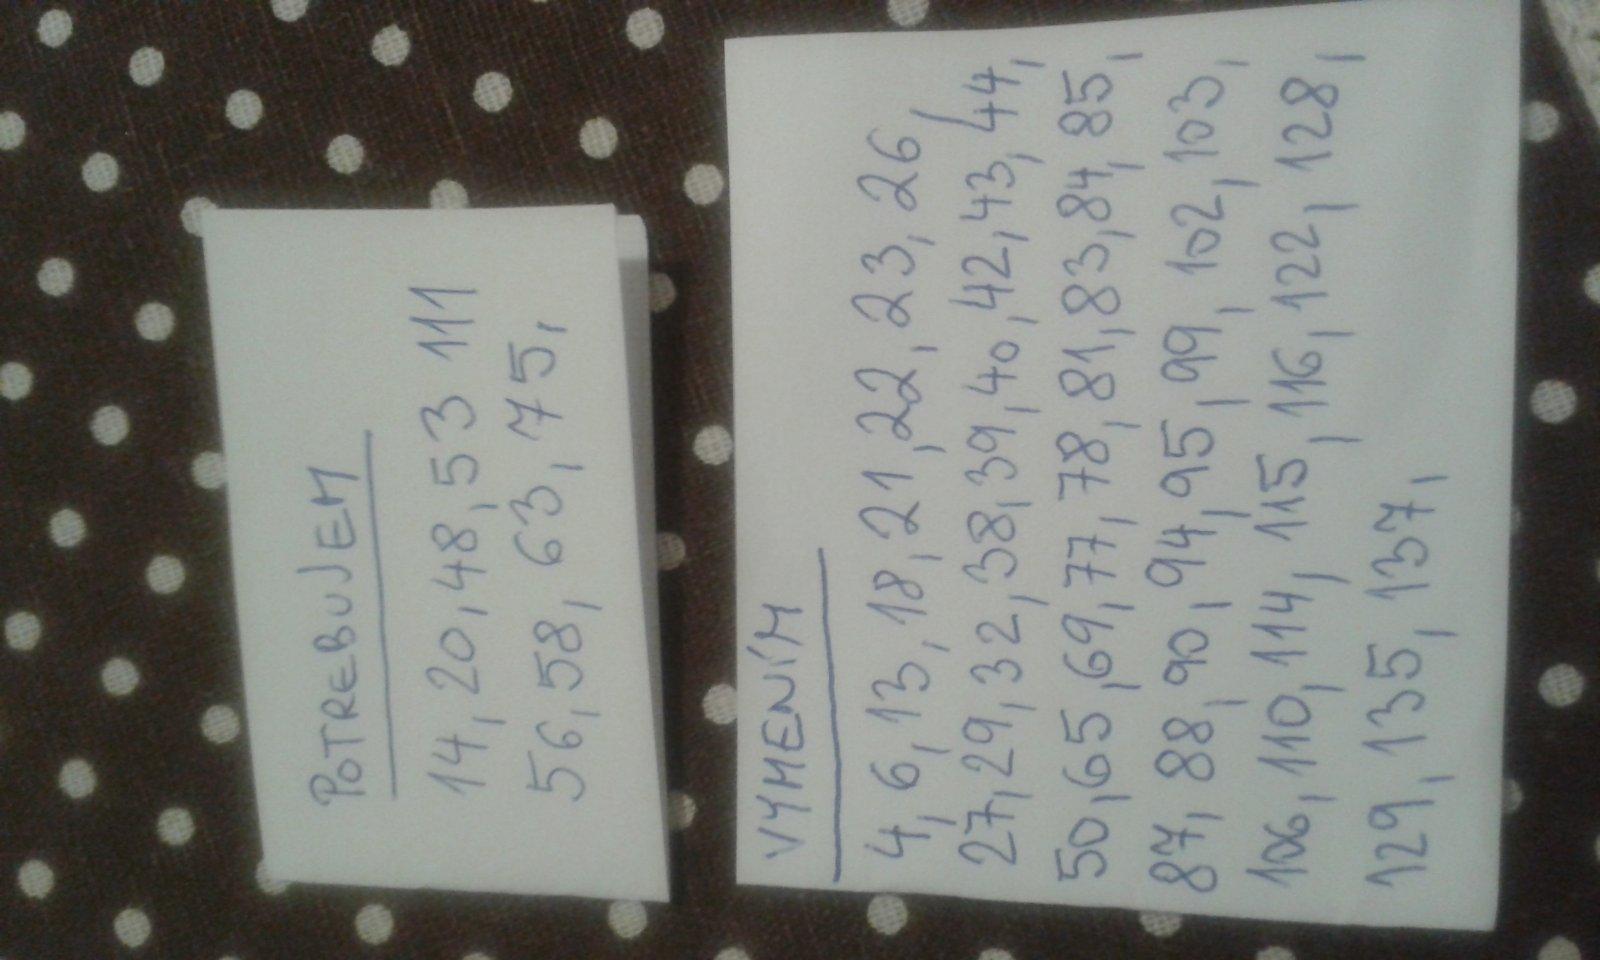 POTREBUJEM
14, 20, 48, 53 111
56, 58, 63, 75,
VYMENÍM
4, 6, 13, 18, 21, 22, 23, 26,
27, 29, 32, 38, 39, 40, 42, 43, 44,
50, 65, 69, 77, 78, 81, 83, 84, 85,
87, 88, 90, 94, 95, 99, 102, 103,
106, 110, 114, 115, 116, 122, 128,
129, 135, 137,